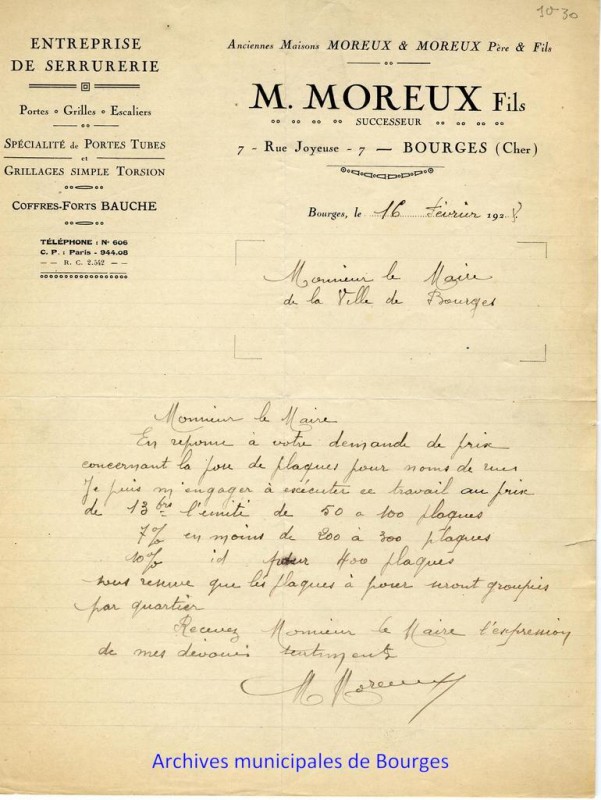 10-30
ENTREPRISE
DE SERRURERIE
Portes · Grilles · Escaliers
SPÉCIALITÉ de PORTES TUBES
et
GRILLAGES SIMPLE TORSION
COFFRES-FORTS BAUCHE
TÉLÉPHONE : N° 606
C. P. : Paris - 944.08
— R. C. 2.542 —
Anciennes Maisons MOREUX & MOREUX Père & Fils
M. MOREUX Fils
SUCCESSEUR
7 - Rue Joyeuse - 7 — BOURGES (Cher)
Bourges, le 16 Février 192
Monsieur le Maire
de la Ville de Bourges
Monsieur le Maire
En reponse à votre demande de prix
concernant la pose de plaques pour noms de rues
Je puis m'engager à exécuter ce travail au prix
de 13 frs l'unité de 50 a 100 plaques
7% en moins de 200 à 300 plaques
10% id pour 400 plaques
sous reserve que les plaques à poser seront groupées
par quartier
Recevez Monsieur le Maire l'expression
de mes dévoués sentiments
M Moreux
Archives municipales de Bourges